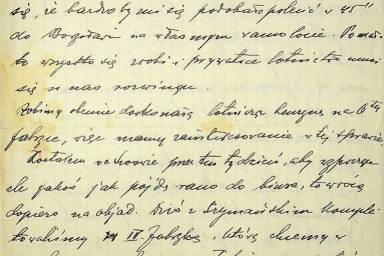 się, że bardzo by mi się podobało polecieć w 45"
do Bogotá na własnym samolocie. Pomału
to wszystko się zrobi i prywatne lotnictwo musi
się u nas rozwinąć.
Robimy obecnie doskonałą lotniczą benzynę na 6tą
fabrykę, więc mamy zainteresowanie w tej sprawie
Zostałem w domu przez ten tydzień, aby
ale jakoś jak pójdę rano do biura, to wrócę
dopiero na objad. Dziś z Szymańskim komple
towaliśmy IV fabrykę, którą chcemy w